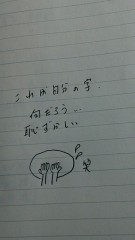 これは自分の字.
何だろう...
恥ずかしい
笑